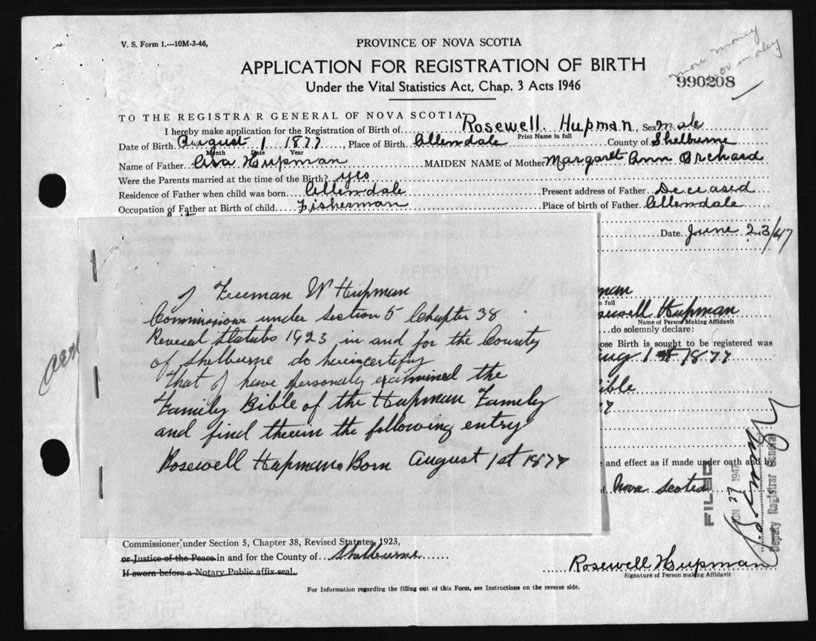 V. S. Form 1.—10M-3-46,
PROVINCE OF NOVA SCOTIA
APPLICATION FOR REGISTRATION OF BIRTH
more money
Under the Vital Statistics Act, Chap. 3 Acts 1946
990208
TO THE REGISTRAR GENERAL OF NOVA SCOTIA
I hereby make application for the Registration of Birth of Rosewell Hupman, Sex male
Print Name in full
Date of Birth August 1 1877, Place of Birth Allendale County of Shelburne
Month Date Year
Name of Father Asa Hupman MAIDEN NAME of Mother Margaret Ann Orchard
Were the Parents married at the time of the Birth? yes
Residence of Father when child was born Allendale Present address of Father Deceased
Occupation of Father at Birth of child Fisherman Place of birth of Father Allendale
Date June 23/47
I Freeman W Hupman
Commissioner under Section 5 Chapter 38
Revised Statutes 1923, in and for the County
of Shelburne do herein certify
that I have personally examined the
Family Bible of the Hupman Family
and find therein the following entry
Rosewell Hupman Born August 1st 1877
man
n full
sewell Hupman
Name of Person Making Affidavit
do solemnly declare:
ose Birth is sought to be registered was
Aug 1st 1877
ible
and effect as if made under oath
Nova Scotia
FILED
JUN 27 1947
Deputy Registrar General
Commissioner, under Section 5, Chapter 38, Revised Statutes, 1923,
or Justice of the Peace in and for the County of Shelburne
If sworn before a Notary Public affix seal.
Rosewell Hupman
Signature of Person making Affidavit
For Information regarding the filling out of this Form, see Instructions on the reverse side.